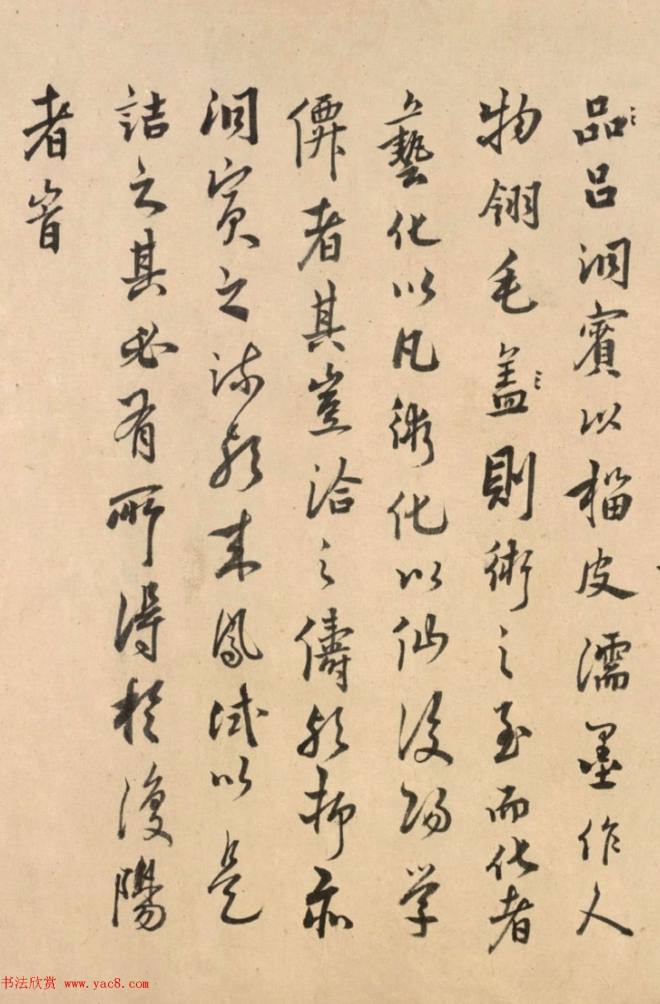 品〻吕洞賓以榴皮濡墨作人
物翎毛盖〻則術之至而化者
藝化以凡術化以仙復陽学
僊者其豈洽之儔歟抑亦
洞賓之流歟来鳳試以是
詰之其必有所得於復陽
者旹
书法欣赏 www.yac8.com